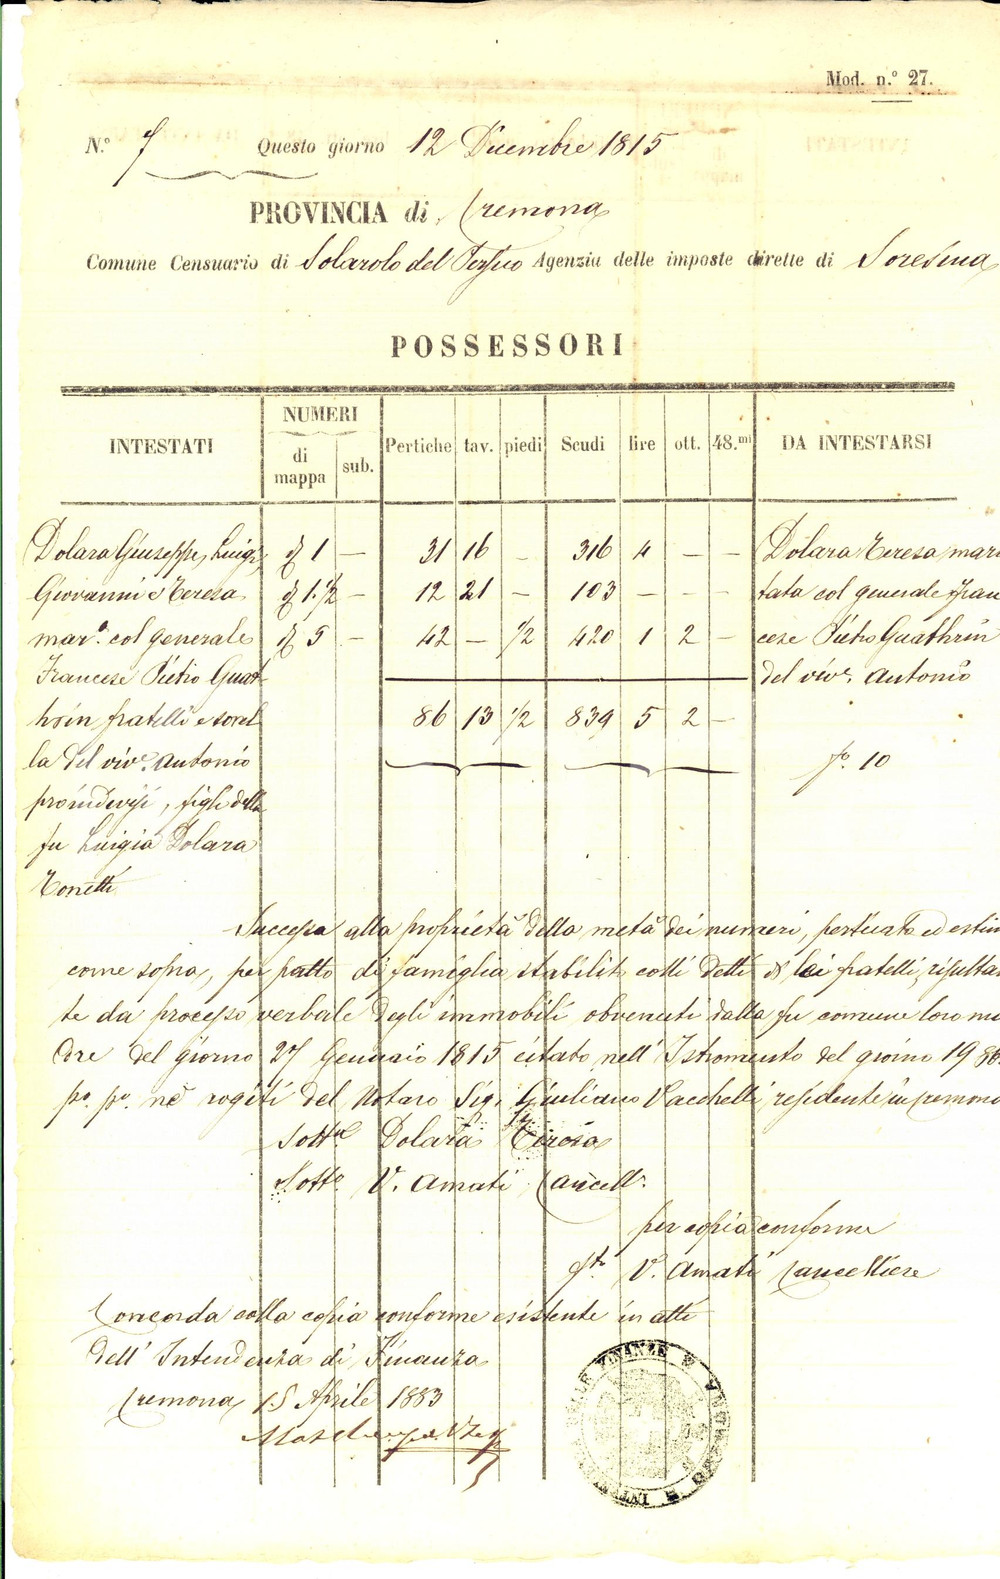 Mod. n.° 27.
N.° 7 Questo giorno 12 Dicembre 1815
PROVINCIA di Cremona
Comune Censuario di Solarolo del Persico Agenzia delle imposte dirette di Soresina
POSSESSORI
INTESTATI NUMERI di mappa sub. Pertiche tav. piedi Scudi lire ott. 48.mi DA INTESTARSI
Dolara Giuseppe, Luigi, 1 — 31 16 — 316 4 — — Dolara Teresa mari
Giovanni e Teresa 1.½ — 12 21 — 103 — — — tata col generale Fran
mar.a col generale 5 — 42 — ½ 420 1 2 — cese Pietro Guathrin
Francese Pietro Guat del viv.e Antonio
hrin fratelli e sorel 86 13 ½ 839 5 2 —
la del viv.e Antonio f.o 10
proindivisi, figli della
fu Luigia Dolara
Tonetti
Successa alla proprietà della metà dei numeri, perticato ed estim
come sopra, per patto di famiglia stabilito colli detti di lei fratelli, risultan
te da processo verbale degli immobili obvenuti dalla fu comune loro ma
dre del giorno 27 Gennaio 1815 citato nell' Istromento del giorno 19
p.o p.o nè rogiti del Notaro Sig. Giuliano Vacchelli residente in Cremona
Dolara Teresa
Sott.o V. Amati Cancell.e
per copia conforme
V. Amati Cancelliere
Concorda colla copia conforme esistente in atti
dell' Intendenza di Finanza
Cremona 15 Aprile 1883